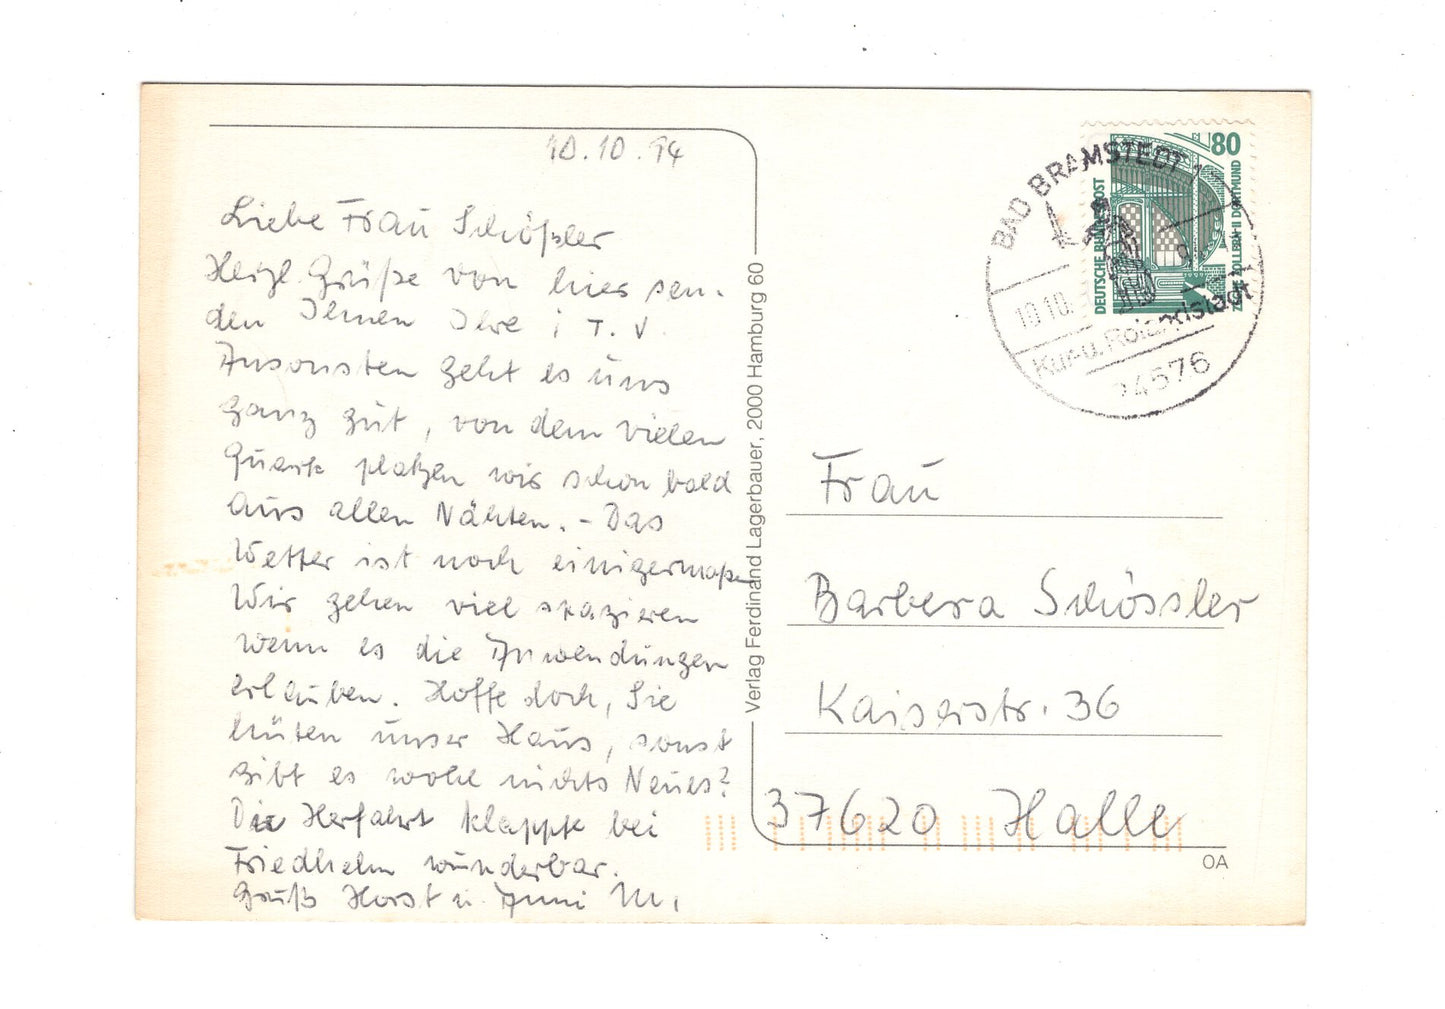 10.10.94
Liebe Frau Schößler
Herzl. Grüße von hier sen-
den Ihnen Ihre i. T. V.
Ansonsten geht es uns
ganz gut, von dem vielen
Quark platzen wir schon bald
aus allen Nähten. - Das
Wetter ist noch einigermaßen
Wir gehen viel spazieren
wenn es die Anwendungen
erlauben. Hoffe doch, Sie
hüten unser Haus, sonst
gibt es wohl nichts Neues?
Die Herfahrt klappte bei
Friedhelm wunderbar.
Gruß Horst u. Anni M.
Verlag Ferdinand Lagerbauer, 2000 Hamburg 60
80
DEUTSCHE BUNDESPOST
ZECHE ZOLLERN II DORTMUND
BAD BRAMSTEDT 1
10.10.
Kur- u. Rolandstadt
24576
Frau
Barbera Schössler
Kaiserstr. 36
37620 Halle
OA